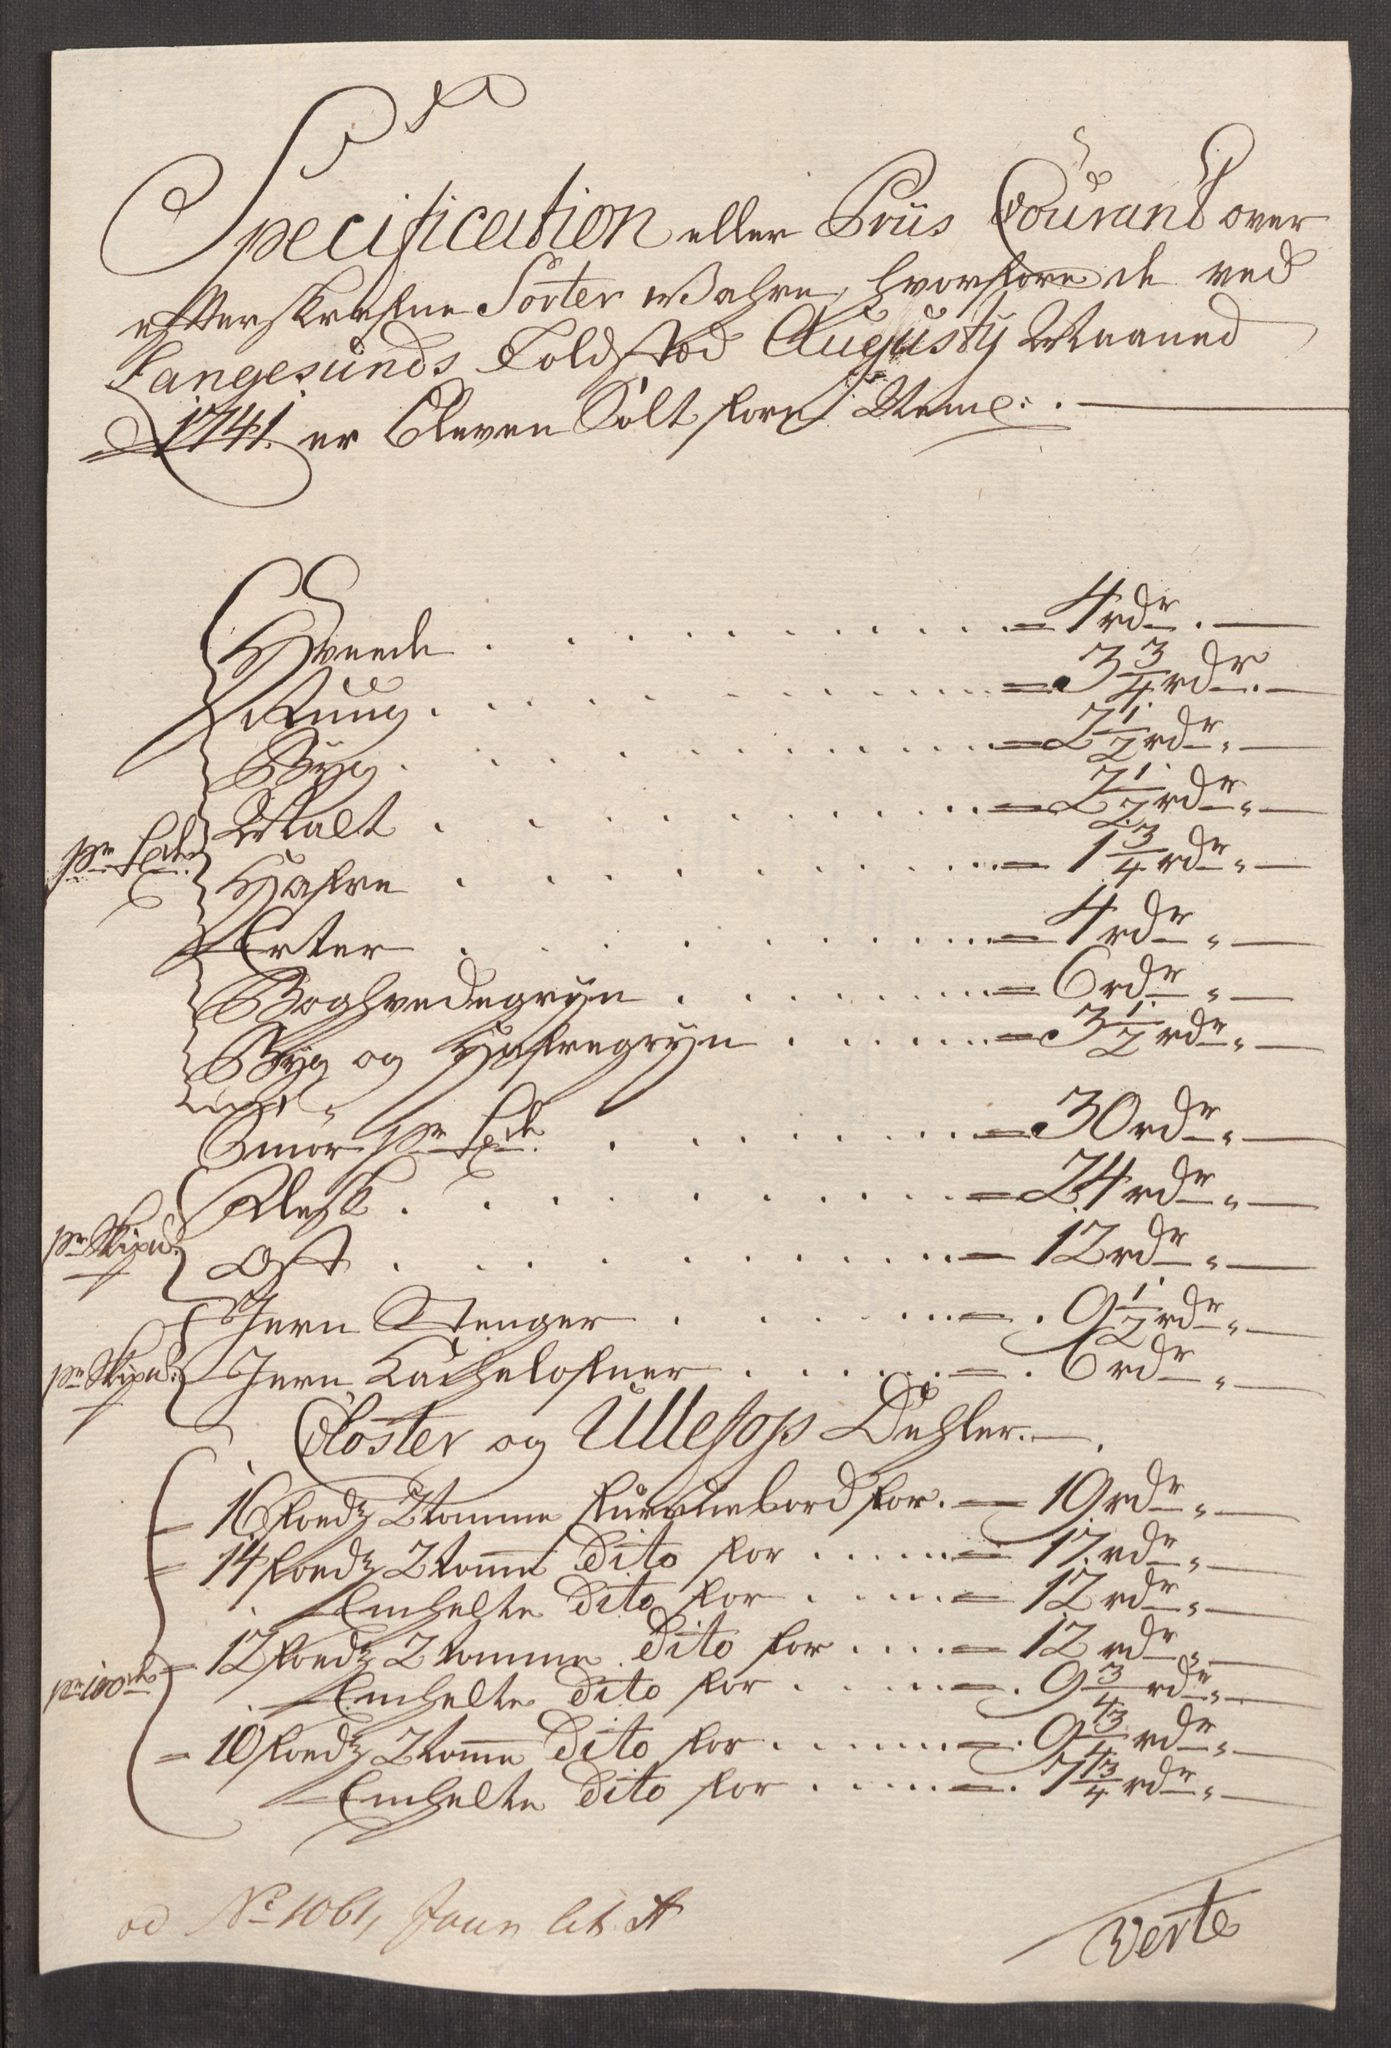 Specification eller Priis Courant over
efterskrefne Sorter Wahre, hvorfore de ved
Langesunds Toldstæd Augusty Maaned
1741. er bleven Solt fore / Neml:.
Hveede . . . = 4 rdr. —
Ruug . . . = 3 3/4 rdr. —
Byg . . . = 2 1/2 rdr „ —
Malt . . . = 2 1/2 rdr „ —
pr Tde
Hafre . . . = 1 3/4 rdr „ —
Erter . . . = 4 rdr „ —
Boghvedegryn . . . = 6 rdr „ —
Byg og Hafregryn . . . = 3 1/2 rdr „ —
Smör pr Tde . . . = 30 rdr „ —
Flesk . . . = 24 rdr „ —
pr Skipd:
Ost . . . = 12 rdr „ —
Jern Stenger . . . = . 9 1/2 rdr „ —
pr Skipd: Jern Kachelofner . . . = . 6 rdr „ —
Closter og Ullefos Dehler. —
= 16 foedz 2 tomme furuebord for . = 19 rdr „ —
= 14 foedz 2 tomme Dito for . . . = 17 rdr „ —
Emhelte Dito for . . . = 12 rdr „ —
= 12 foedz 2 tomme Dito for . . . = 12 rdr „ —
pr 100de
Emhelte Dito for . . . = . 9 3/4 rdr „ —
= 10 foedz 2 tomme Dito for . . . = . 9 3/4 rdr „ —
Emhelte Dito for . . . = . 7 3/4 rdr „ —
ad No 1061, Joun lit A
Verte